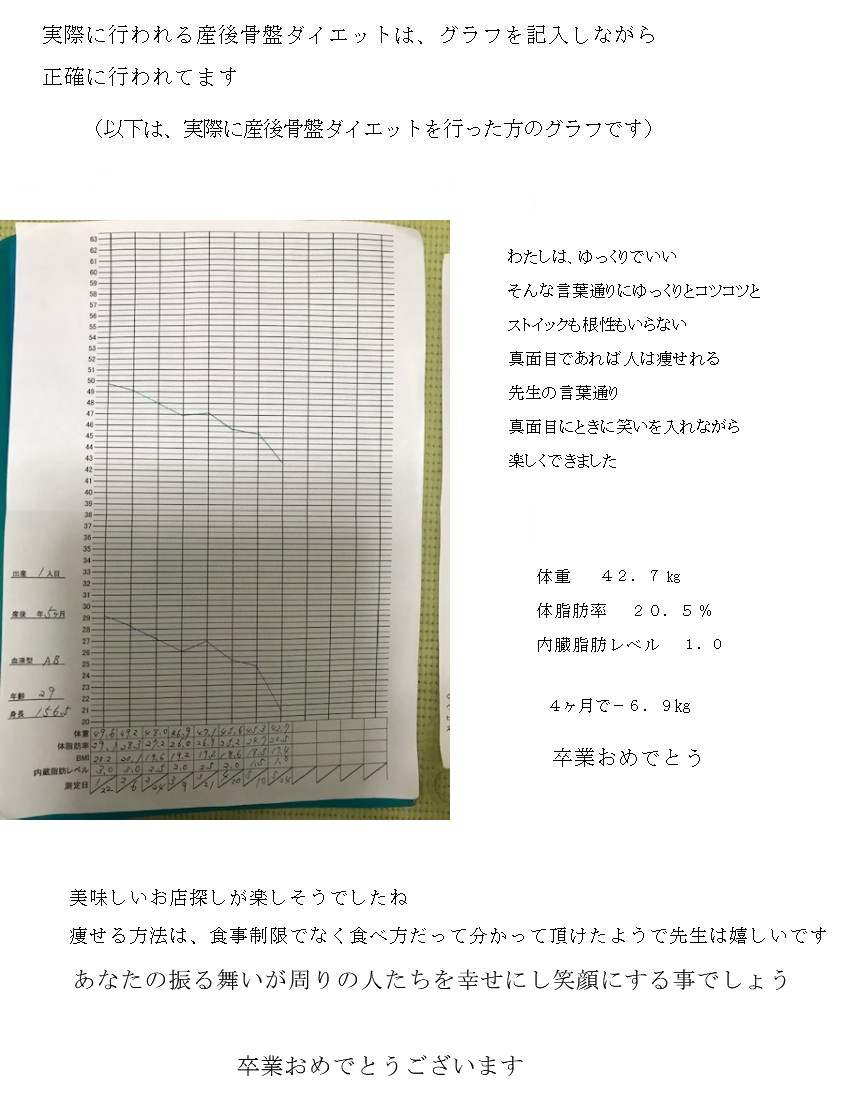 実際に行われる産後骨盤ダイエットは、グラフを記入しながら
正確に行われてます
（以下は、実際に産後骨盤ダイエットを行った方のグラフです）
わたしは、ゆっくりでいい
そんな言葉通りにゆっくりとコツコツと
ストイックも根性もいらない
真面目であれば人は痩せれる
先生の言葉通り
真面目にときに笑いを入れながら
楽しくできました
体重　４２．７㎏
体脂肪率　２０．５％
内臓脂肪レベル　１．０
４ヶ月で－６．９㎏
卒業おめでとう
63
62
61
60
59
58
57
56
55
54
53
52
51
50
49
48
47
46
45
44
43
42
41
40
39
38
37
36
35
34
33
32
31
30
29
28
27
26
25
24
23
22
21
20
出産 1人目
産後 年5ヶ月
血液型 AB
年齢 29
身長 156.5
体重 49.6 49.2 48.0 46.9 47.1 45.6 45.3 42.7
体脂肪率 29.1 28.3 27.2 26.0 26.9 25.2 24.7 20.5
BMI 20.2 20.1 19.6 19.2 19.2 18.6 18.5 17.4
内蔵脂肪レベル 3.0 3.0 2.5 2.0 2.5 2.0 1.5 1.0
測定日
美味しいお店探しが楽しそうでしたね
痩せる方法は、食事制限でなく食べ方だって分かって頂けたようで先生は嬉しいです
あなたの振る舞いが周りの人たちを幸せにし笑顔にする事でしょう
卒業おめでとうございます